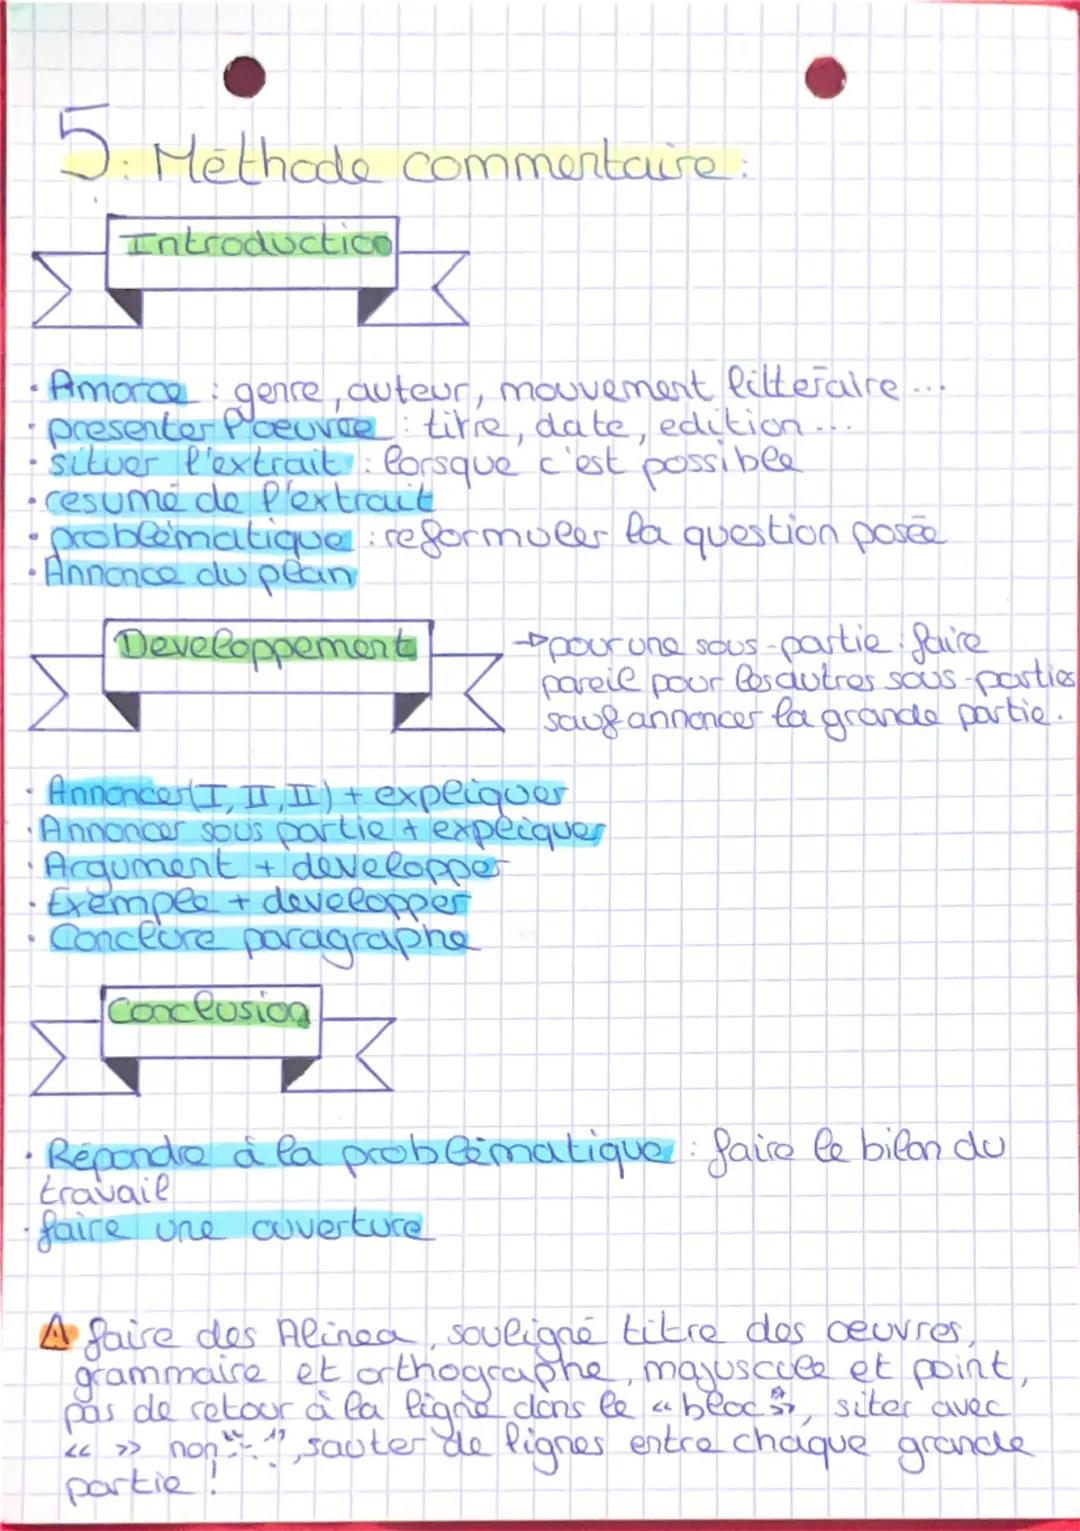 5: Méthode commentaire:
Introduction
· Amorce : genre, auteur, mouvement litteraire...
· presenter l'oeuvre : titre, date, edition...
· situer l'extrait : lorsque c'est possible
· resumé de l'extrait
· problématique : reformuler la question posée
· Annonce du plan
Developpement
→ pour une sous-partie : faire
pareil pour les autres sous-parties
sauf annoncer la grande partie.
· Annoncer (I, II, II) + expliquer
· Annoncer sous partie + expliquer
· Argument + developper
· Exemple + developper
· Conclure paragraphe
Conclusion
· Répondre à la problématique : faire le bilan du
travail
· faire une ouverture
⚠ faire des Alinea, souligné titre des oeuvres,
grammaire et orthographe, majuscule et point,
pas de retour à la ligne dans le « bloc », siter avec
« » non " ", sauter de lignes entre chaque grande
partie !